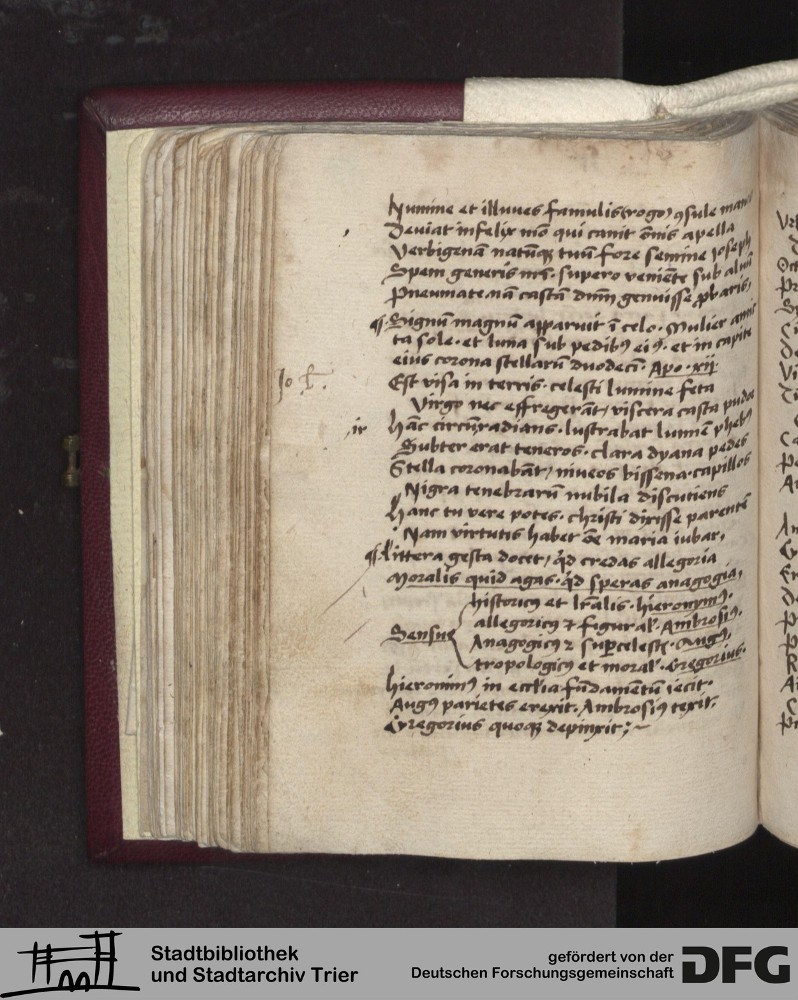 Numine et illuues famulis (rogo) ꝯsule
Deuiat infelix mō qui canit ōnis apella
Verbigenā natūqꝫ tuū fore semine Joseph
Spem generis nrī. supero veniēte sub aluū
Pneumate nā castā dnm̄ genuisse ꝓbaris,
¶ Signū magnū apparuit ī celo. Mulier amic
ta sole. et luna sub pedibꝰ eiꝰ. et in capite
eius corona stellarū duodecī. Apo. xij
Est visa in terris. celesti lumine feta
Virgo nec effregerāt, viscera casta pudor
ir
hāc circūradians. lustrabat lumē phebꝰ
Subter erat teneros. clara dyana pedes
Stella coronabāt, niueos bissena. capillos
Nigra tenebrarū nubila discutiens
Hanc tu vere potes. christi dixisse parentē
Nam virtutis habet ōe maria iubar,
¶ Littera gesta docet, qd credas allegoria
Moralis quid agas. qd speras anagogia,
historicꝰ et lrālis. hieronymꝰ.
allegoricꝰ ⁊ figural'. Ambrosiꝰ,
Sensus
Anagogicꝰ ⁊ supcelest'. Augꝰ,
tropologicꝰ et moral'. Gregorius.
hieronimꝰ in eccl'ia fūdamētū iecit.
Augꝰ parietes erexit. Ambrosiꝰ texit.
Gregorius quoqꝫ depinxit;~
Stadtbibliothek
und Stadtarchiv Trier
gefördert von der
Deutschen Forschungsgemeinschaft
DFG